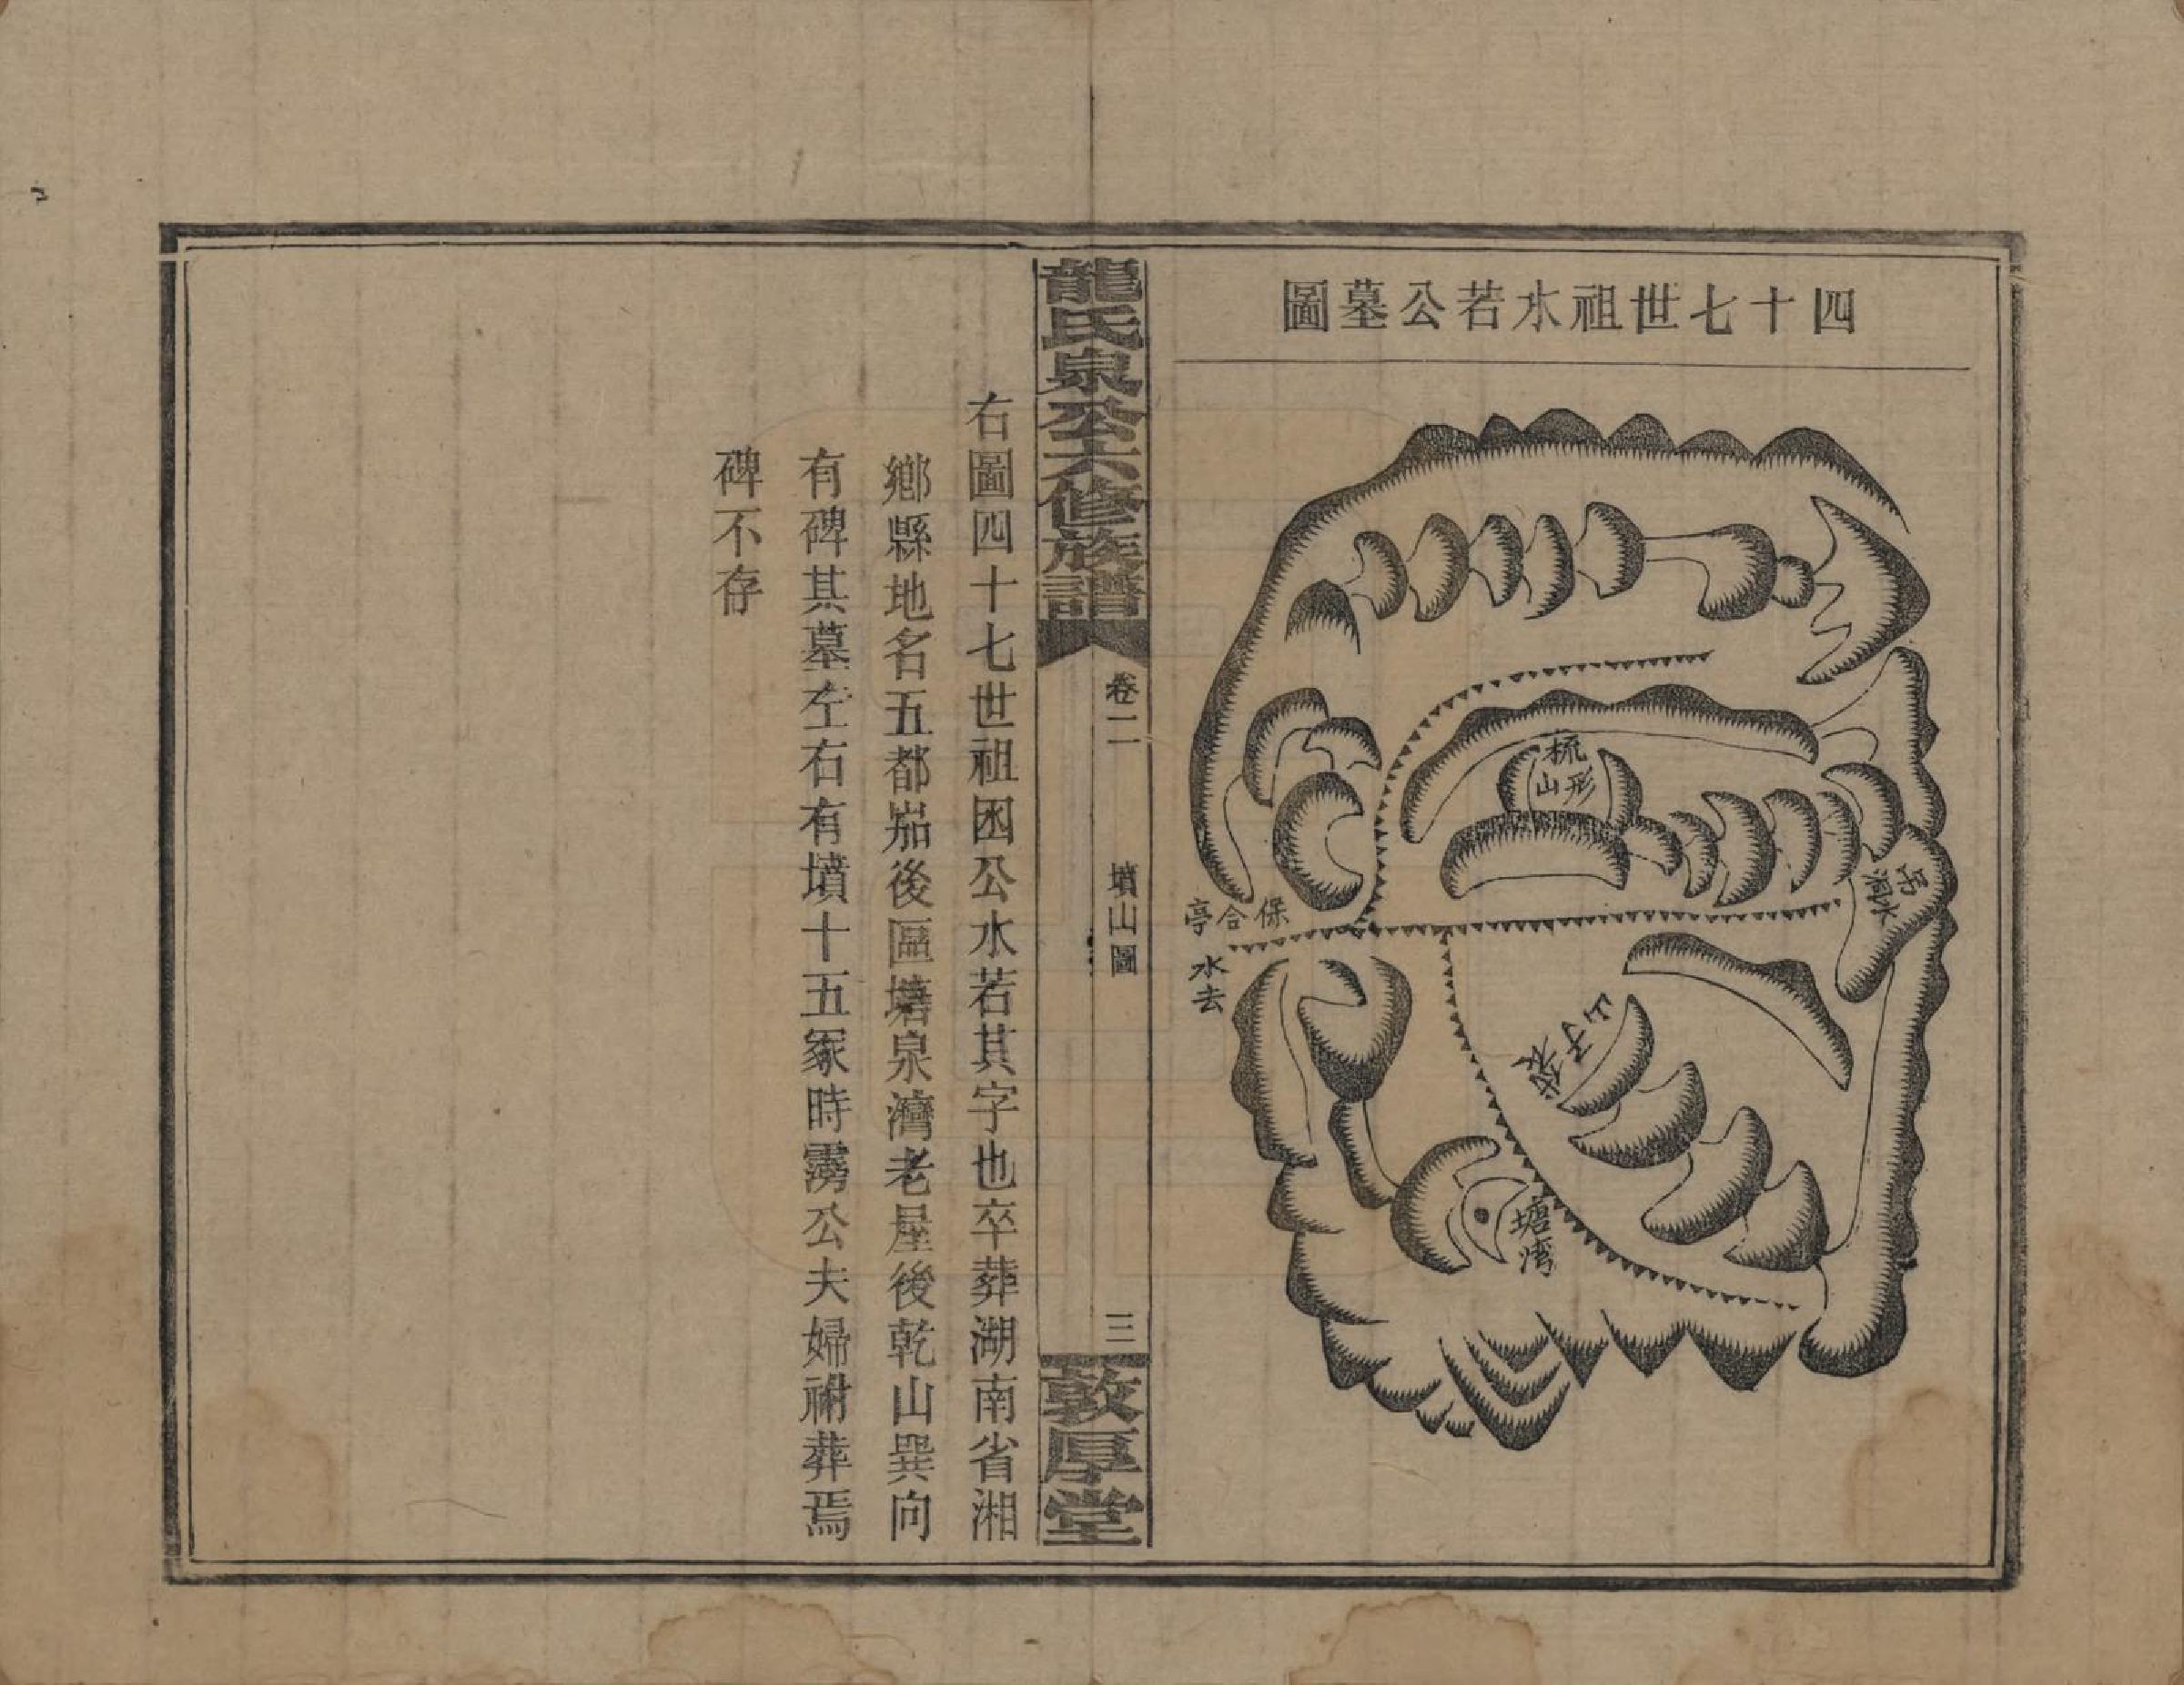 四十七世祖水若公墓圖
梳形山
吊水洞
袱子山
塘湾
保合亭
水去
龍氏泉公六修族譜
卷二
墳山圖
三
敦厚堂
右圖四十七世祖困公水若其字也卒葬湖南省湘
鄉縣地名五都茄後區塘泉灣老屋後乾山巽向
有碑其墓左右有墳十五冢時霶公夫婦祔葬焉
碑不存